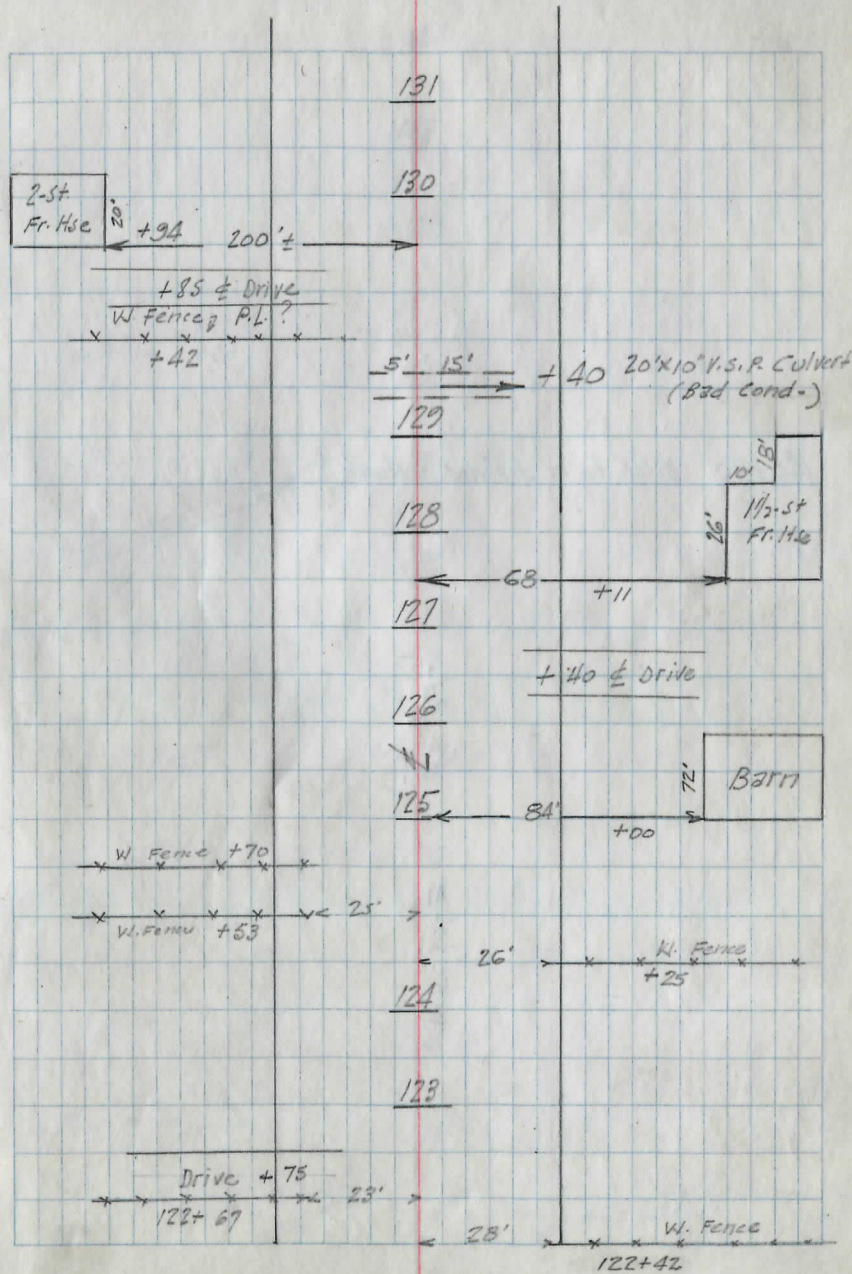 131
130
2-st.
Fr. Hse
20'
+94 200'±
+85 ℄ Drive
W Fence, P.L. ?
+42
5' 15' +40 20'x10" V.S.P. Culvert
(Bad Cond-)
129
18'
10'
128
26'
1½-st
Fr. Hse
68
+11
127
+40 ℄ Drive
126
℄
72'
Barn
125
84'
+00
W Fence +70
25'
W. Fence +53
W. Fence
26'
+25
124
123
Drive +75
23'
122+67
28'
W. Fence
122+42